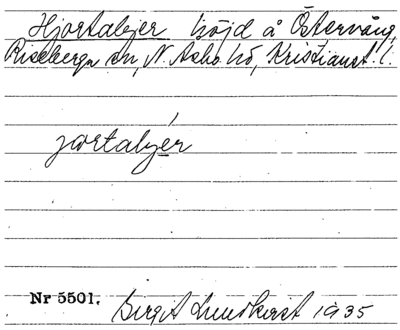 Hjortabjer höjd å Östervång,
Riseberga sn, N. Åsbo hd, Kristianst. l.
jortabjér
Nr 5501.
Birgit Lundkvist 1935